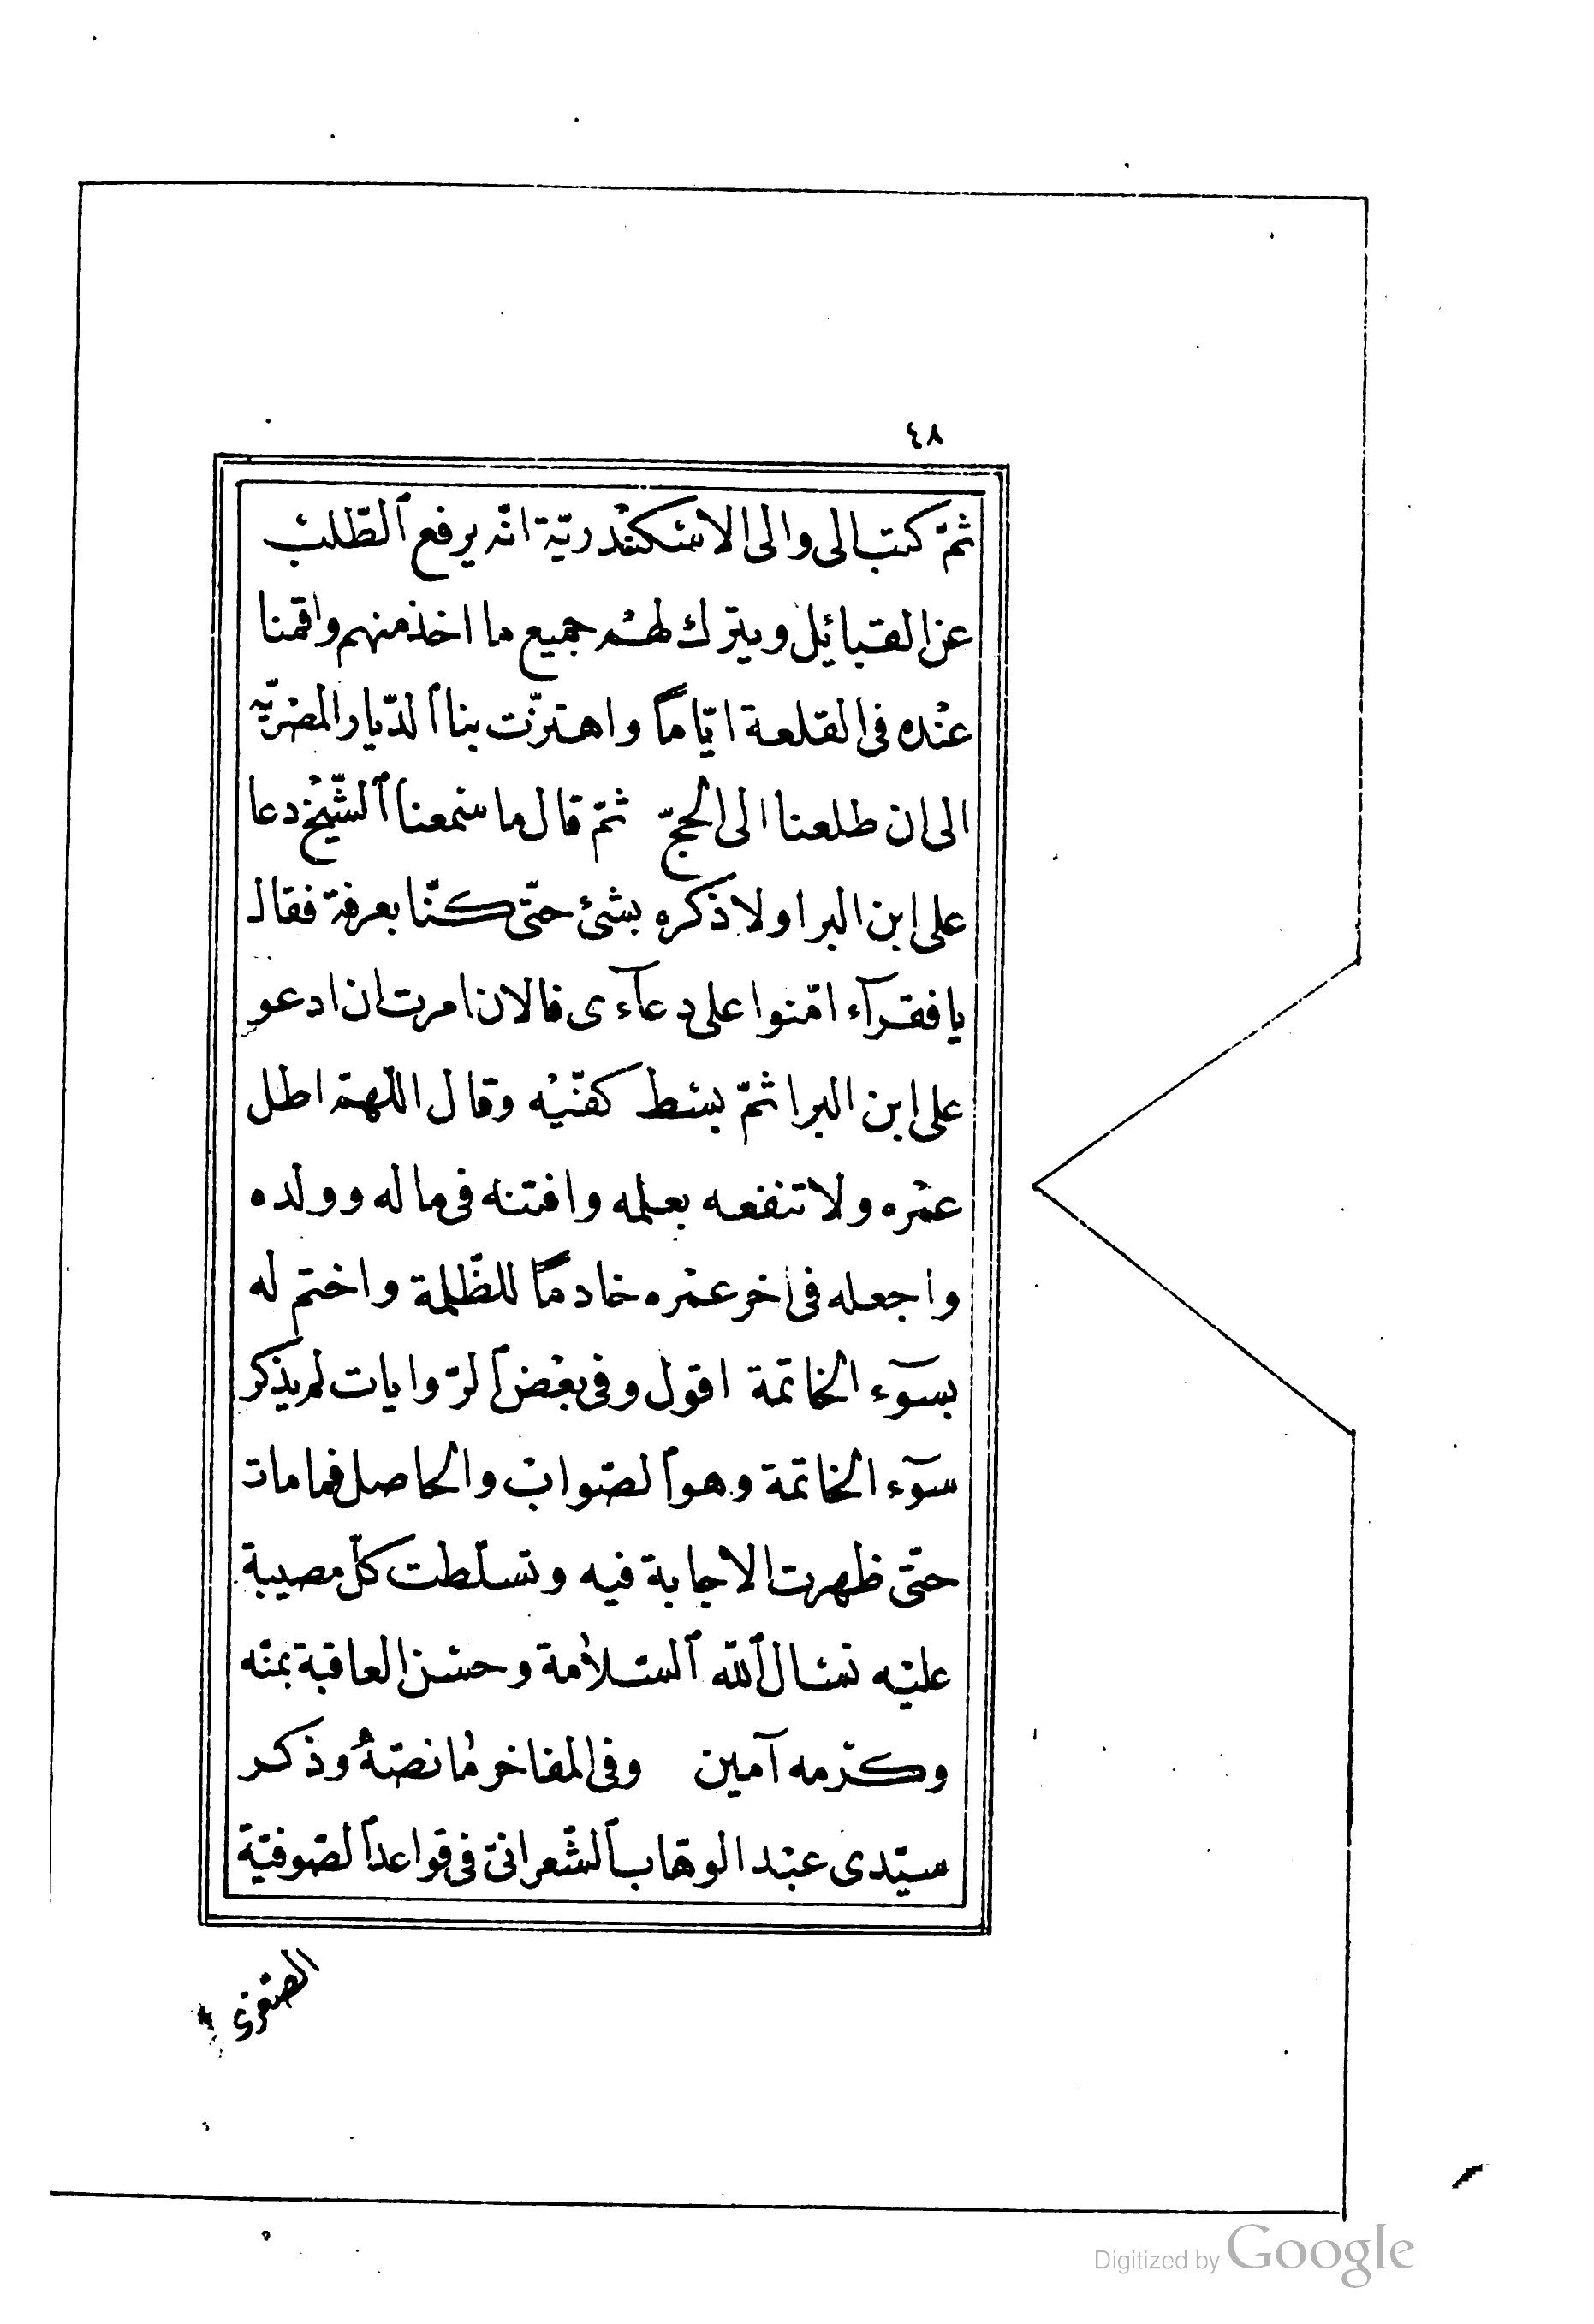 ٤٨
ثمّ كتب الى والى الاسكندريّة انّه يرفع الطّلب
عن القبائل ويترك لهم جميع ما اخذ منهم واقمنا
عنده فى القلعة ايّاماً واهتزّت بنا الدّيار المصريّه
الى ان طلعنا الى الحجّ ثمّ قال ما سمعنا الشّيخ دعا
على ابن البرا ولا ذكره بشئ حتّى كنّا بعرفة فقال
يا فقرآء امّنوا على دعآءى فالان امرت ان ادعو
على ابن البرا ثمّ بسط كفّيه وقال اللّهمّ اطل
عمره ولا تنفعه بعلمه وافتنه فى ماله وولده
واجعله فى اخر عمره خادماً للظّلمة واختم له
بسوٓء الخاتمة اقول وفى بعض الرّوايات لم يذكر
سوٓء الخاتمة وهو الصّواب والحاصل فما مات
حتّى ظهرت الاجابة فيه وتسلّطت كلّ مصيبة
عليه نسال الله السّلامة وحسن العاقبة بمنّه
وكرمه آمين وفى المفاخر ما نصّهُ وذكر
سيّدى عبد الوهّاب الشّعرانىّ فى قواعد الصّوفيّة
الصّغرى
Digitized by Google